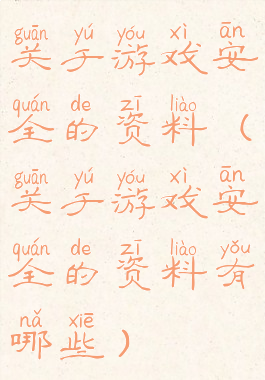 guān yú yóu xì ān
关于游戏安
quán de zī liào
全的资料（
guān yú yóu xì ān
关于游戏安
quán de zī liào yǒu
全的资料有
nǎ xiē
哪些）